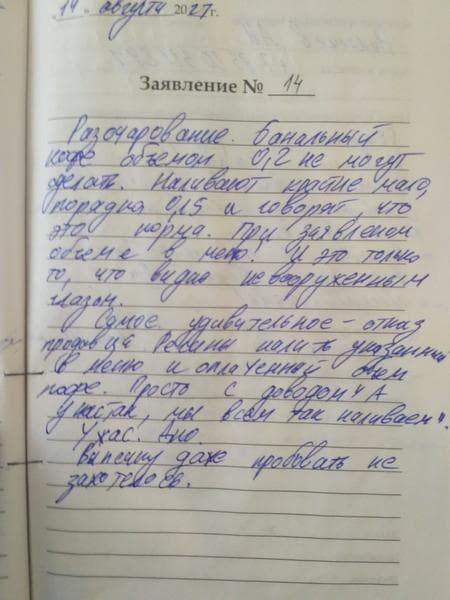 14. августа 2027 г.
Заявление № 14
Разочарование. Банальный
кофе объемом 0,2 не могут
сделать. Наливают крайне мало,
порядка 0,15 и говорят, что
это норма. При заявленом
объеме в меню! И это только
то, что видно невооруженным
глазом.
Самое удивительное – отказ
продавца налить указанный
в меню и оплаченный объем
кофе. Просто с доводом "А
у нас так, мы всем так наливаем".
Ужас. Дно.
Выпечку даже пробовать не
захотелось.